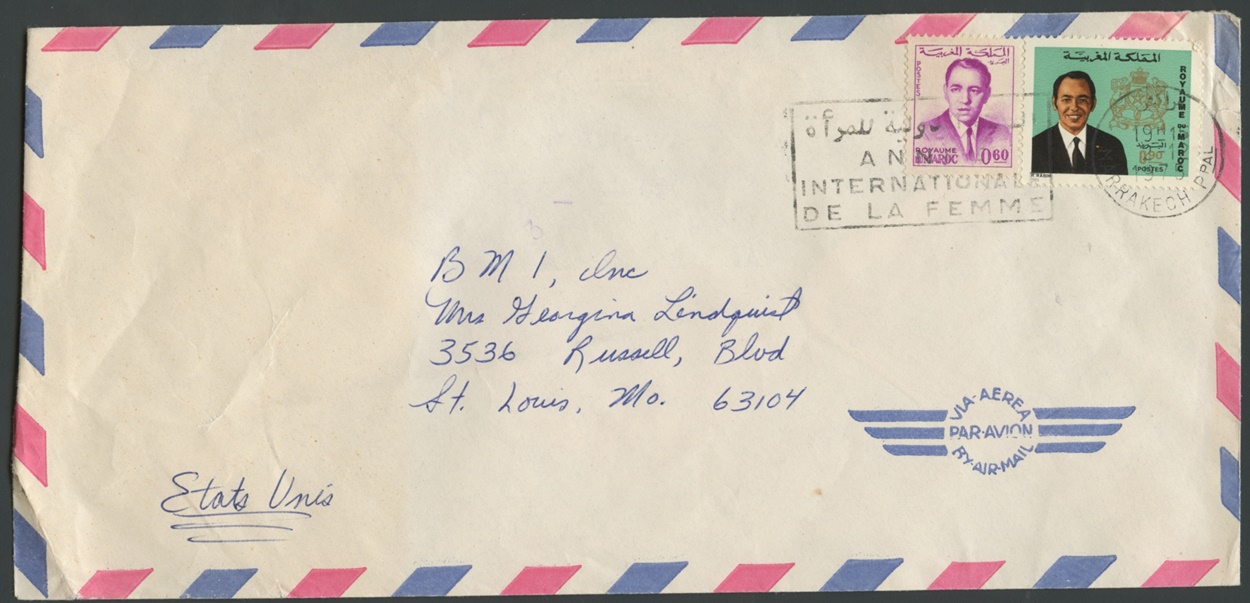 المملكة المغربية
POSTES
ROYAUME
DU MAROC
0.60
المملكة المغربية
ROYAUME DU MAROC
0,90
POSTES
دولية للمرأة
ANN
INTERNATIONALE
DE LA FEMME
19H
MARRAKECH-PPAL
B M I, Inc
Mrs Georgina Lindquist
3536 Russell, Blvd
St. Louis, Mo. 63104
VIA-AEREA
PAR-AVION
BY-AIR-MAIL
Etats Unis